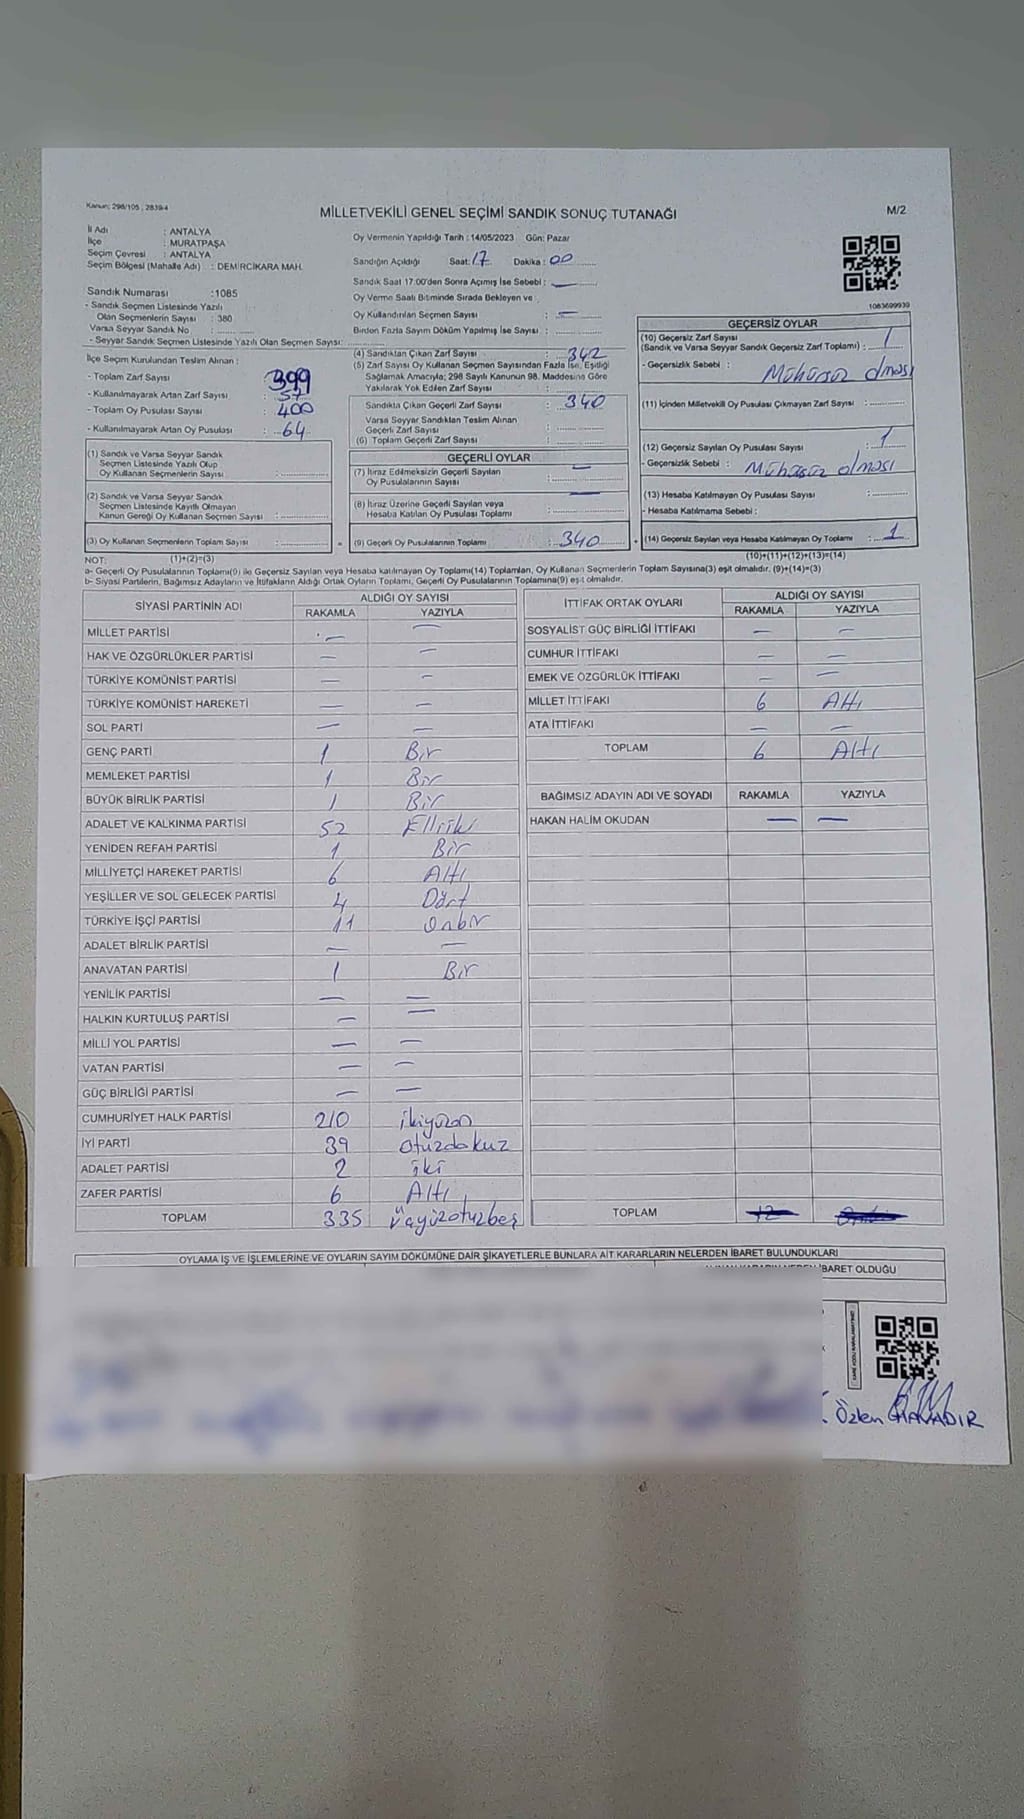 Kanun: 298/105 , 2839/4
MİLLETVEKİLİ GENEL SEÇİMİ SANDIK SONUÇ TUTANAĞI
M/2
İl Adı : ANTALYA
İlçe : MURATPAŞA
Seçim Çevresi : ANTALYA
Seçim Bölgesi (Mahalle Adı) : DEMİRCİKARA MAH.
Sandık Numarası :1085
- Sandık Seçmen Listesinde Yazılı
Olan Seçmenlerin Sayısı : 380
Varsa Seyyar Sandık No :
- Seyyar Sandık Seçmen Listesinde Yazılı Olan Seçmen Sayısı:
Oy Vermenin Yapıldığı Tarih : 14/05/2023 Gün: Pazar
Sandığın Açıldığı Saat: 17 Dakika : 00
Sandık Saat 17:00'den Sonra Açımış İse Sebebi : —
Oy Verme Saati Bitiminde Sırada Bekleyen ve
Oy Kullandırılan Seçmen Sayısı : —
Birden Fazla Sayım Döküm Yapılmış İse Sayısı :
1083699939
İlçe Seçim Kurulundan Teslim Alınan :
- Toplam Zarf Sayısı : 399
- Kullanılmayarak Artan Zarf Sayısı : 57
- Toplam Oy Pusulası Sayısı : 400
- Kullanılmayarak Artan Oy Pusulası : 64
(1) Sandık ve Varsa Seyyar Sandık
Seçmen Listesinde Yazılı Olup
Oy Kullanan Seçmenlerin Sayısı :
(2) Sandık ve Varsa Seyyar Sandık
Seçmen Listesinde Kayıtlı Olmayan
Kanun Gereği Oy Kullanan Seçmen Sayısı :
(3) Oy Kullanan Seçmenlerin Toplam Sayısı :
(4) Sandıktan Çıkan Zarf Sayısı : 342
(5) Zarf Sayısı Oy Kullanan Seçmen Sayısından Fazla İse, Eşitliği
Sağlamak Amacıyla; 298 Sayılı Kanunun 98. Maddesine Göre
Yakılarak Yok Edilen Zarf Sayısı :
Sandıkta Çıkan Geçerli Zarf Sayısı : 340
Varsa Seyyar Sandıktan Teslim Alınan
Geçerli Zarf Sayısı :
(6) Toplam Geçerli Zarf Sayısı :
GEÇERLİ OYLAR
(7) İtiraz Edilmeksizin Geçerli Sayılan —
Oy Pusulalarının Sayısı :
(8) İtiraz Üzerine Geçerli Sayılan veya —
Hesaba Katılan Oy Pusulası Toplamı :
= (9) Geçerli Oy Pusulalarının Toplamı : 340 +
GEÇERSİZ OYLAR
(10) Geçersiz Zarf Sayısı 1
(Sandık ve Varsa Seyyar Sandık Geçersiz Zarf Toplamı) :
- Geçersizlik Sebebi : Mühürsüz olması
(11) İçinden Milletvekili Oy Pusulası Çıkmayan Zarf Sayısı :
(12) Geçersiz Sayılan Oy Pusulası Sayısı : 1
- Geçersizlik Sebebi : Mühürsüz olması
(13) Hesaba Katılmayan Oy Pusulası Sayısı :
- Hesaba Katılmama Sebebi :
(14) Geçersiz Sayılan veya Hesaba Katılmayan Oy Toplamı : 1
NOT: (1)+(2)=(3) (10)+(11)+(12)+(13)=(14)
a- Geçerli Oy Pusulalarının Toplamı(9) ile Geçersiz Sayılan veya Hesaba Katılmayan Oy Toplamı(14) Toplamları, Oy Kullanan Seçmenlerin Toplam Sayısına(3) eşit olmalıdır. (9)+(14)=(3)
b- Siyasi Partilerin, Bağımsız Adayların ve İttifakların Aldığı Ortak Oyların Toplamı, Geçerli Oy Pusulalarının Toplamına(9) eşit olmalıdır.
SİYASİ PARTİNİN ADI ALDIĞI OY SAYISI
RAKAMLA YAZIYLA
MİLLET PARTİSİ — —
HAK VE ÖZGÜRLÜKLER PARTİSİ — —
TÜRKİYE KOMÜNİST PARTİSİ — —
TÜRKİYE KOMÜNİST HAREKETİ — —
SOL PARTİ — —
GENÇ PARTİ 1 Bir
MEMLEKET PARTİSİ 1 Bir
BÜYÜK BİRLİK PARTİSİ 1 Bir
ADALET VE KALKINMA PARTİSİ 52 Elliiki
YENİDEN REFAH PARTİSİ 1 Bir
MİLLİYETÇİ HAREKET PARTİSİ 6 Altı
YEŞİLLER VE SOL GELECEK PARTİSİ 4 Dört
TÜRKİYE İŞÇİ PARTİSİ 11 Onbir
ADALET BİRLİK PARTİSİ — —
ANAVATAN PARTİSİ 1 Bir
YENİLİK PARTİSİ — —
HALKIN KURTULUŞ PARTİSİ — —
MİLLİ YOL PARTİSİ — —
VATAN PARTİSİ — —
GÜÇ BİRLİĞİ PARTİSİ — —
CUMHURİYET HALK PARTİSİ 210 ikiyüzon
İYİ PARTİ 39 otuzdokuz
ADALET PARTİSİ 2 iki
ZAFER PARTİSİ 6 Altı
TOPLAM 335 üçyüzotuzbeş
İTTİFAK ORTAK OYLARI ALDIĞI OY SAYISI
RAKAMLA YAZIYLA
SOSYALİST GÜÇ BİRLİĞİ İTTİFAKI — —
CUMHUR İTTİFAKI — —
EMEK VE ÖZGÜRLÜK İTTİFAKI — —
MİLLET İTTİFAKI 6 Altı
ATA İTTİFAKI — —
TOPLAM 6 Altı
BAĞIMSIZ ADAYIN ADI VE SOYADI RAKAMLA YAZIYLA
HAKAN HALİM OKUDAN — —
TOPLAM
OYLAMA İŞ VE İŞLEMLERİNE VE OYLARIN SAYIM DÖKÜMÜNE DAİR ŞİKAYETLERLE BUNLARA AİT KARARLARIN NELERDEN İBARET BULUNDUKLARI
İBARET OLDUĞU
Özlen